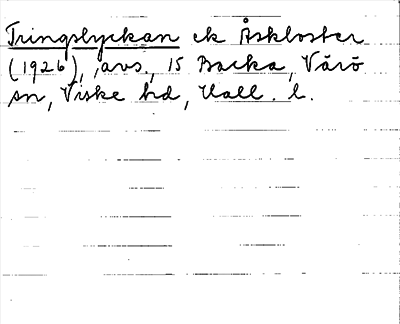 Tringslyckan ek Åskloster
(1926), avs., 15 Backa, Värö
sn, Viske hd, Hall. l.